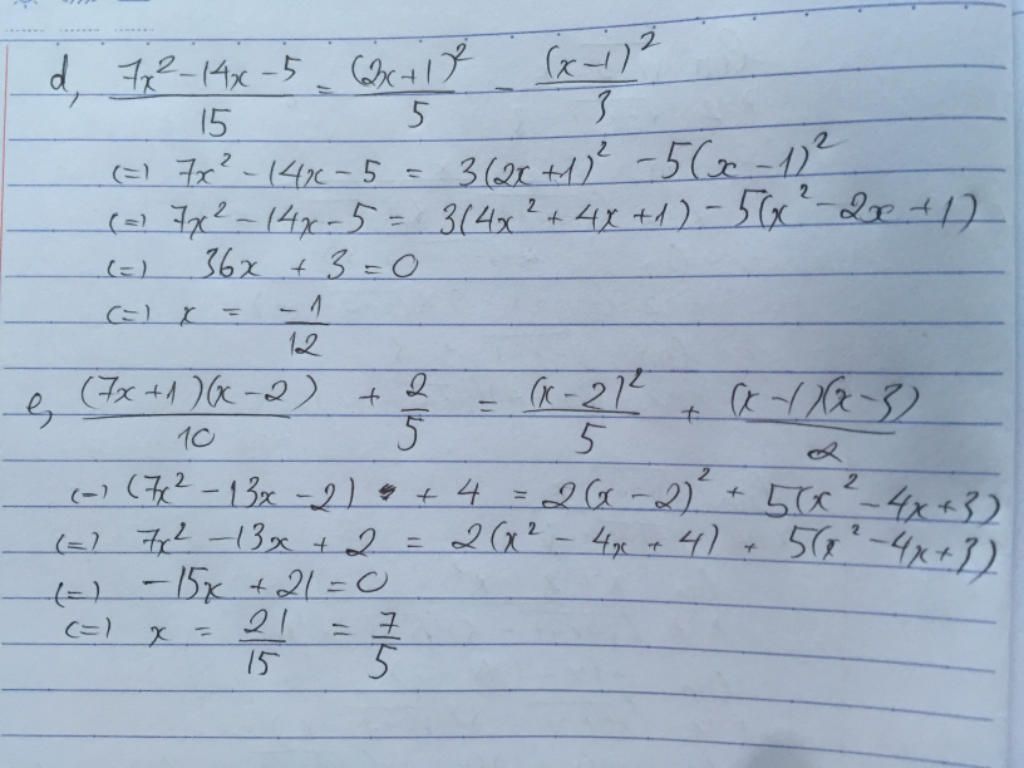 d, (7x² - 14x - 5)/15 = (2x+1)²/5 - (x-1)²/3
(=) 7x² - 14x - 5 = 3(2x+1)² - 5(x-1)²
(=) 7x² - 14x - 5 = 3(4x² + 4x + 1) - 5(x² - 2x + 1)
(=) 36x + 3 = 0
(=) x = -1/12
e, (7x+1)(x-2)/10 + 2/5 = (x-2)²/5 + (x-1)(x-3)/2
(=) (7x² - 13x - 2) + 4 = 2(x-2)² + 5(x² - 4x + 3)
(=) 7x² - 13x + 2 = 2(x² - 4x + 4) + 5(x² - 4x + 3)
(=) -15x + 21 = 0
(=) x = 21/15 = 7/5